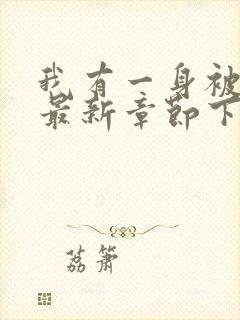 我有一身被
最新章节下
荔箫